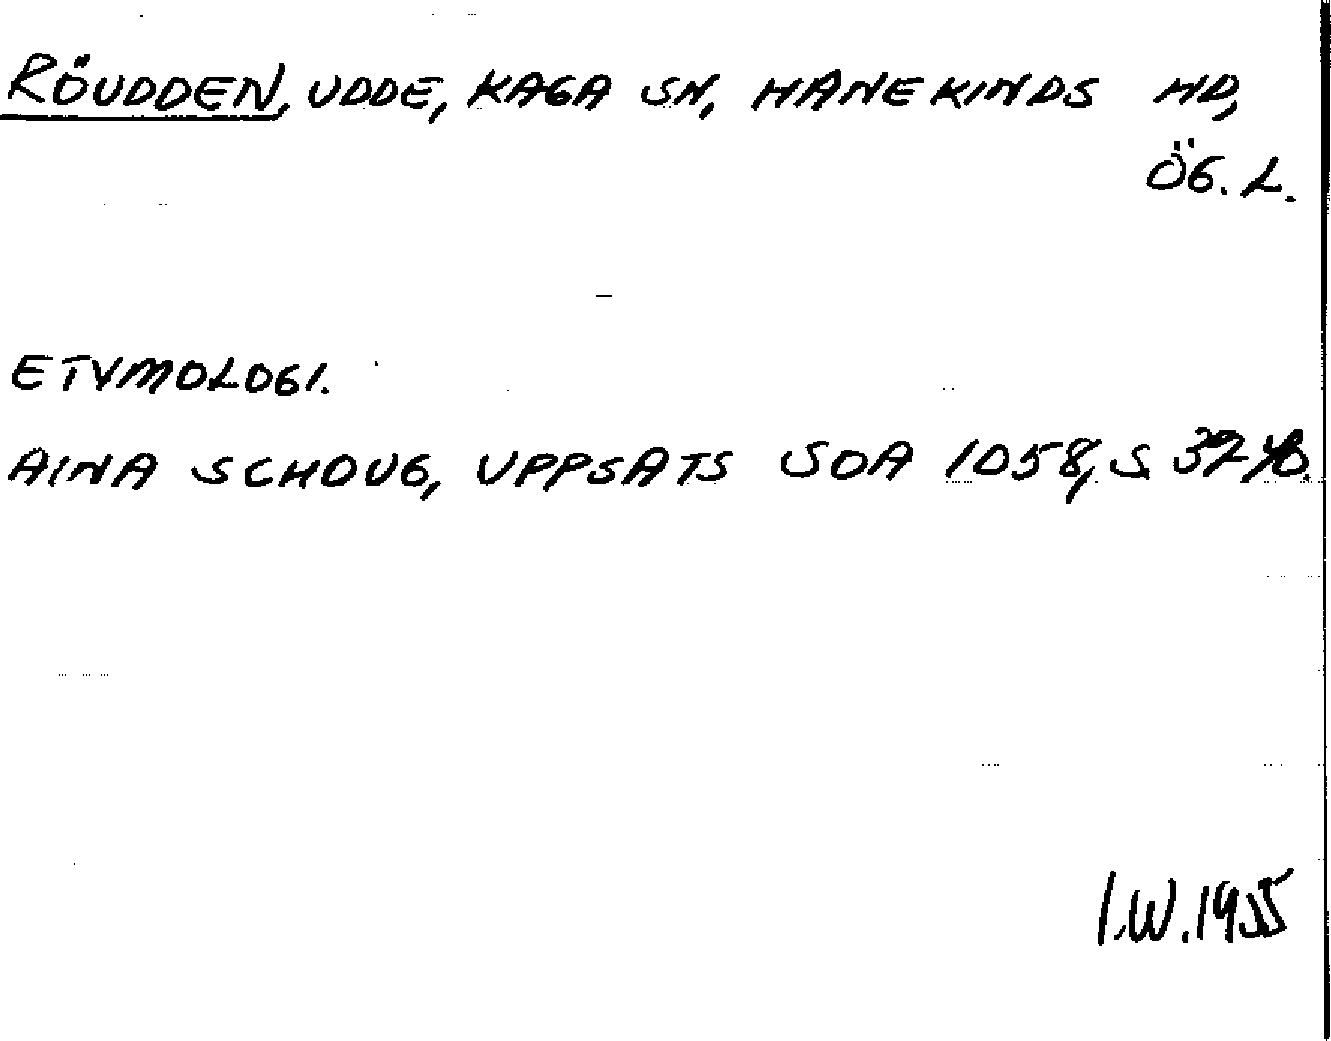 RÖUDDEN, UDDE, KAGA SN, HANEKINDS HD,
ÖG. L.
ETYMOLOGI.
AINA SCHOUG, UPPSATS SOA 1058, S
I.W. 1955